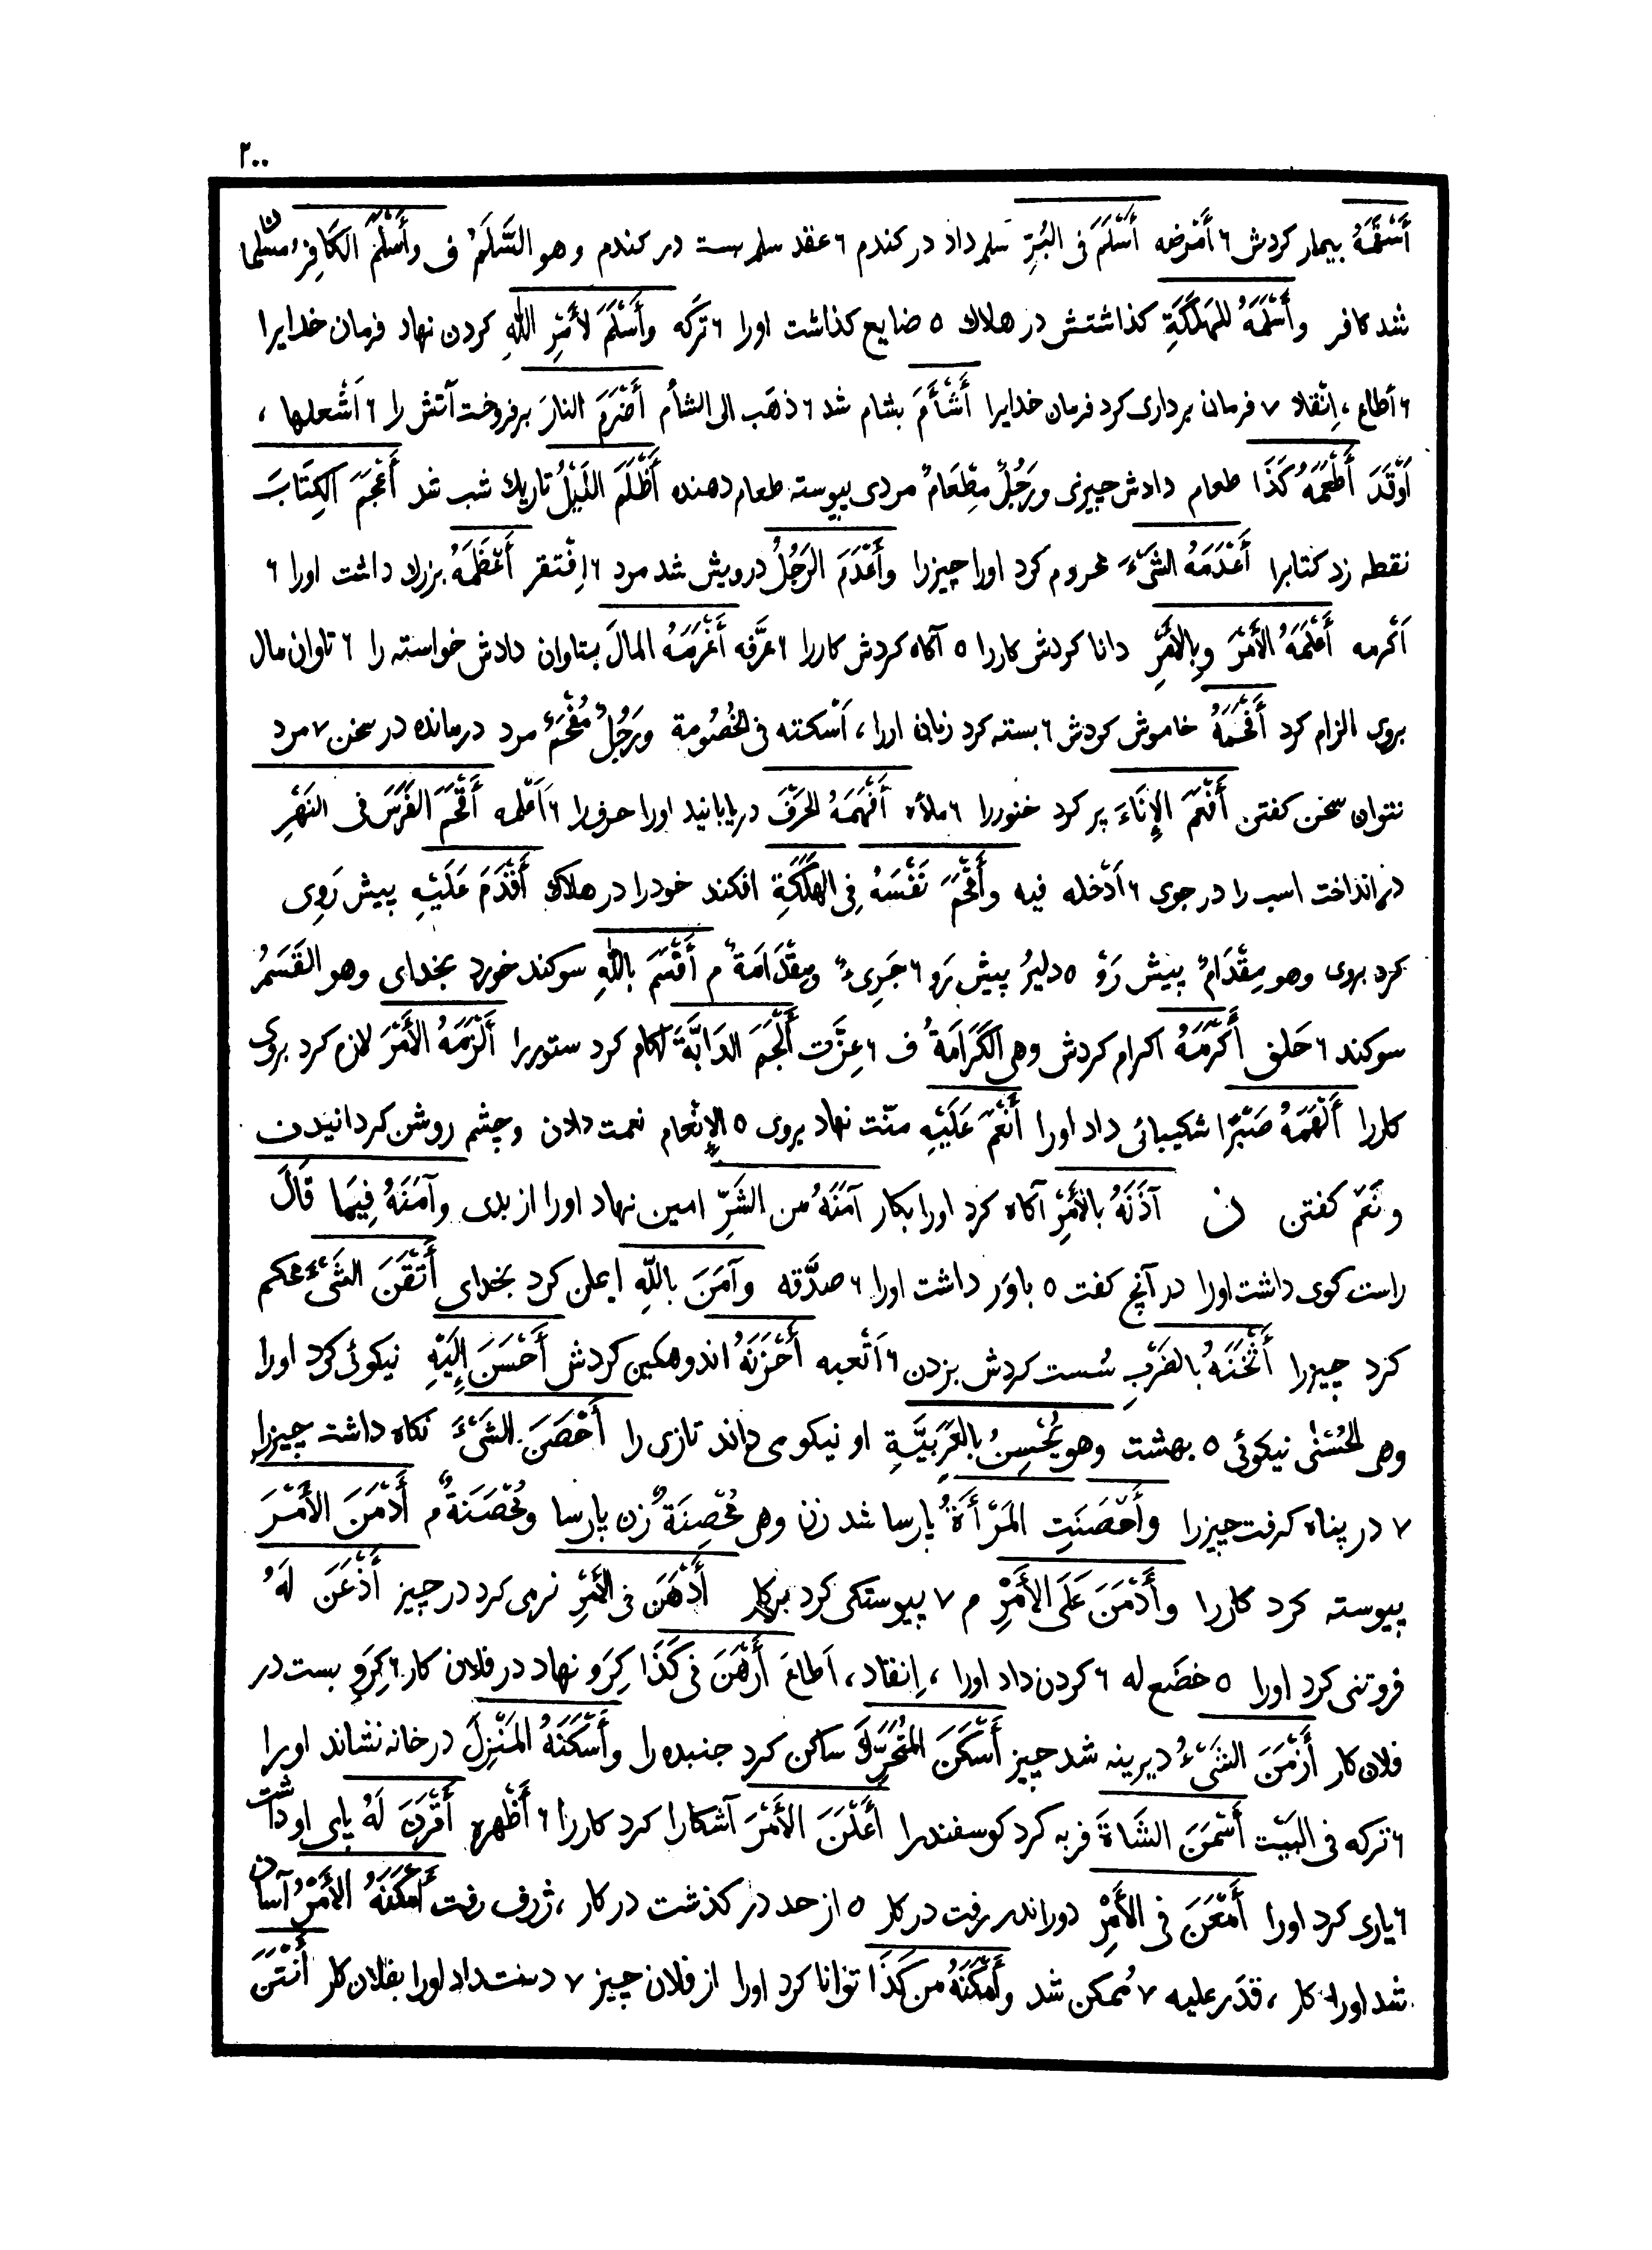 ۲۰۰
أَسْقَمَهُ بیمار کردش ۶ أَمْرَضه أَسْلَمَ فی البُرِّ سلم داد در کندم ۶ عقد سلم بست در کندم وهو السَّلَمُ ف وأَسْلَمَ الکَافِرُ مسلمان
شد کافر وأَسْلَمَهُ للمَهْلَکَةِ کذاشتش در هلاک ۵ ضایع کذاشت اورا ۶ تَرَکَه وأَسْلَمَ لأَمْرِ اللهِ کردن نهاد فرمان خدایرا
۶ أطاع ، اِنْقاد ۷ فرمان برداری کرد فرمان خدایرا أَشْأَمَ بشام شد ۶ ذهَب الی الشأم أَضْرَمَ النارَ برفروخت آتش را ۶ اَشْعلها ،
اَوْقَدَ أَطْعَمَهُ کَذَا طعام دادش چیزی ورَجُلٌ مِطْعَامٌ مردی پیوسته طعام دهنده أَظْلَمَ اللَیْلُ تاریك شب شد أَعْجَمَ الکِتَابَ
نقطه زد کتابرا أَعْدَمَهُ الشَیْءَ محروم کرد اورا چیزرا وأَعْدَمَ الرَجُلُ درویش شد مرد ۶ اِفْتقر أَعْظَمَهُ بزرك داشت اورا ۶
اَکْرمه أَعْلَمَهُ الأَمْرَ وبِالأَمْرِ دانا کردش کاررا ۵ آکاه کردش کاررا ۶ عَرَّفه أَغْرَمَهُ المالَ بتاوان دادش خواسته را ۶ تاوان مال
بروی الزام کرد أَفْحَمَهُ خاموش کردش ۶ بسته کرد زبان اورا ، اَسْکته فی الخُصُومة ورَجُلٌ مُفْحَمٌ مرد درمانده در سخن ۷ مرد
نتوان سخن کفتن أَفْعَمَ الإِنَاءَ پر کرد خنوررا ۶ ملأه أَفْهَمَهُ الحَرْفَ دریابانید اورا حرف را ۶ اَعْلمه أَقْحَمَ الفَرَسَ فی النَهْرِ
درانداخت اسب را در جوی ۶ اَدْخله فیه وأَقْحَمَ نَفْسَهُ فِی الهَلَکَةِ افکند خودرا در هلاك أَقْدَمَ عَلَیْهِ پیش رَوِی
کرد بروی وهو مِقْدَامٌ پیش رَوْ ۵ دلیرُ پیش رَو ۶ جَرِیءٌ ومِقْدَامَةٌ م أَقْسَمَ بِاللهِ سوکند خورد بخدای وهو القَسَمُ
سوکند ۶ حَلف أَکْرَمَهُ اکرام کردش وهی الکَرَامَةُ ف ۶ عِزّت أَلْجَمَ الدَابَّةَ لکام کرد ستوررا أَلْزَمَهُ الأَمْرَ لازم کرد بروی
کاررا أَلْهَمَهُ صَبْرًا شکیبائی داد اورا أَنْعَمَ عَلَیْهِ منّت نهاد بروی ۵ الإِنْعام نعمت دادن وچشم روشن کردانیدن
ونَعَم کفتن ن آذَنَهُ بالأَمْرِ آکاه کرد اورا بکار آمَنَهُ من الشَرِّ امین نهاد اورا از بدی وآمَنَهُ فِیمَا قَالَ
راست کوی داشت اورا در آنچ کفت ۵ باوَر داشت اورا ۶ صدَّقه وآمَنَ باللّٰهِ ایمان کرد بخدای أَتْقَنَ الشَیْءَ محکم
کرد چیزرا أَثْخَنَهُ بالضَرْبِ سُست کردش بزدن ۶ اَتْعبه أَحْزَنَهُ اندوهکین کردش أَحْسَنَ إِلَیْهِ نیکوئی کرد اورا
وهی الحُسْنٰی نیکوئی ۵ بهشت وهو یُحْسِنُ بالعَرَبِیَّةِ او نیکو می داند تازی را أَحْصَنَ الشَیْءَ نکاه داشت چیزرا
۷ در پناه کرفت چیزرا وأَحْصَنَتِ المَرْأَةُ پارسا شد زن وهی مُحْصِنَةٌ زن پارسا ومُحْصَنَةٌ م أَدْمَنَ الأَمْرَ
پیوسته کرد کاررا وأَدْمَنَ عَلَی الأَمْرِ م ۷ پیوستکی کرد برکار أَدْهَنَ فی الأَمْرِ نرمی کرد در چیز أَذْعَنَ لَهُ
فروتنی کرد اورا ۵ خضَع له ۶ کردن داد اورا ، اِنقاد ، اَطاعَ أَرْهَنَ فی کَذَا کِرَو نهاد در فلان کار ۶ کِرَوِ بست در
فلان کار أَزْمَنَ الشَیْءُ دیرینه شد چیز أَسْکَنَ المُتَحَرِّكَ ساکن کرد جنبده را وأَسْکَنَهُ المَنْزِلَ در خانه نشاند اورا
۶ ترکه فی البَیْت أَسْمَنَ الشَاةَ فربه کرد کوسفندرا أَعْلَنَ الأَمْرَ آشکارا کرد کاررا ۶ أَظْهره أَقْرَنَ لَهُ پای او داشت
۶ یاری کرد اورا أَمْعَنَ فی الأَمْرِ دور اندر رفت در کار ۵ از حد در کذشت در کار ، ژرف رفت أَمْکَنَهُ الأَمْرُ آسان
شد اورا کار ، قدَر علیه ۷ مُمکن شد وأَمْکَنَهُ من کَذَا توانا کرد اورا از فلان چیز ۷ دست داد اورا بفلان کار أَنْتَنَ